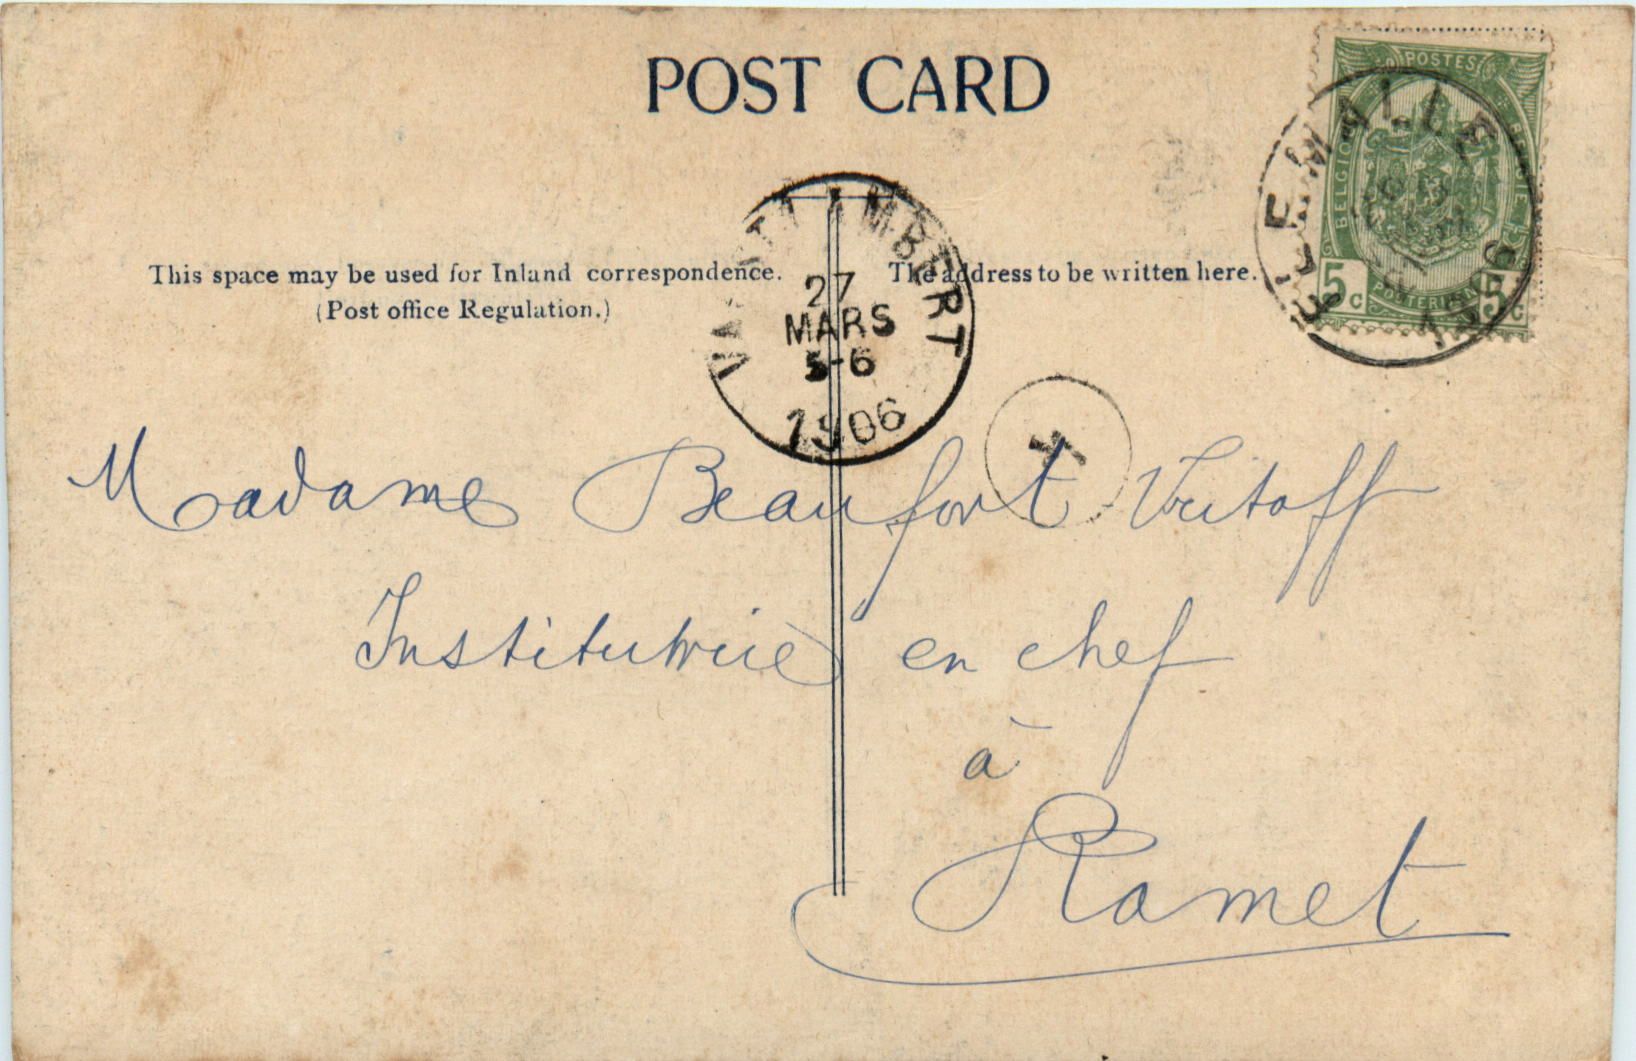 POST CARD
POSTES
BELGIQUE
5c 5c
FLEMALLE
1906
VAL ST LAMBERT
27
MARS
5-6
1906
This space may be used for Inland correspondence.
(Post office Regulation.)
The address to be written here.
T
Madame Beaufort-Vritoff
Institutrice en chef
à
Ramet